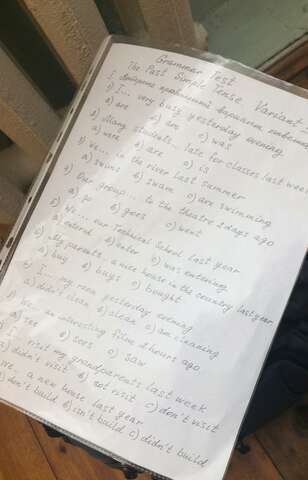 Grammar Test
The Past Simple Tense Variant
I. Выберите правильный вариант
1) I... very busy yesterday evening
a) are в) am c) was
2) Many students... late for classes last week
a) were в) are c) is
3) We... in the river last summer
a) swims в) swam c) are swimming
4) Our group... to the theatre 2 days ago
a) go в) goes c) went
5) We... our Technical School last year
a) enterd в) enter c) was entering
6) My parents... a nice house in the country last year
a) buy в) buys c) bought
7) I... my room yesterday evening
a) didn't clean в) clean c) am cleaning
We... an interesting film 2 hours ago
a) see в) sees c) saw
I... visit my grandparents last week
a) didn't visit в) not visit c) don't visit
a new house last year
don't build в) isn't build c) didn't build